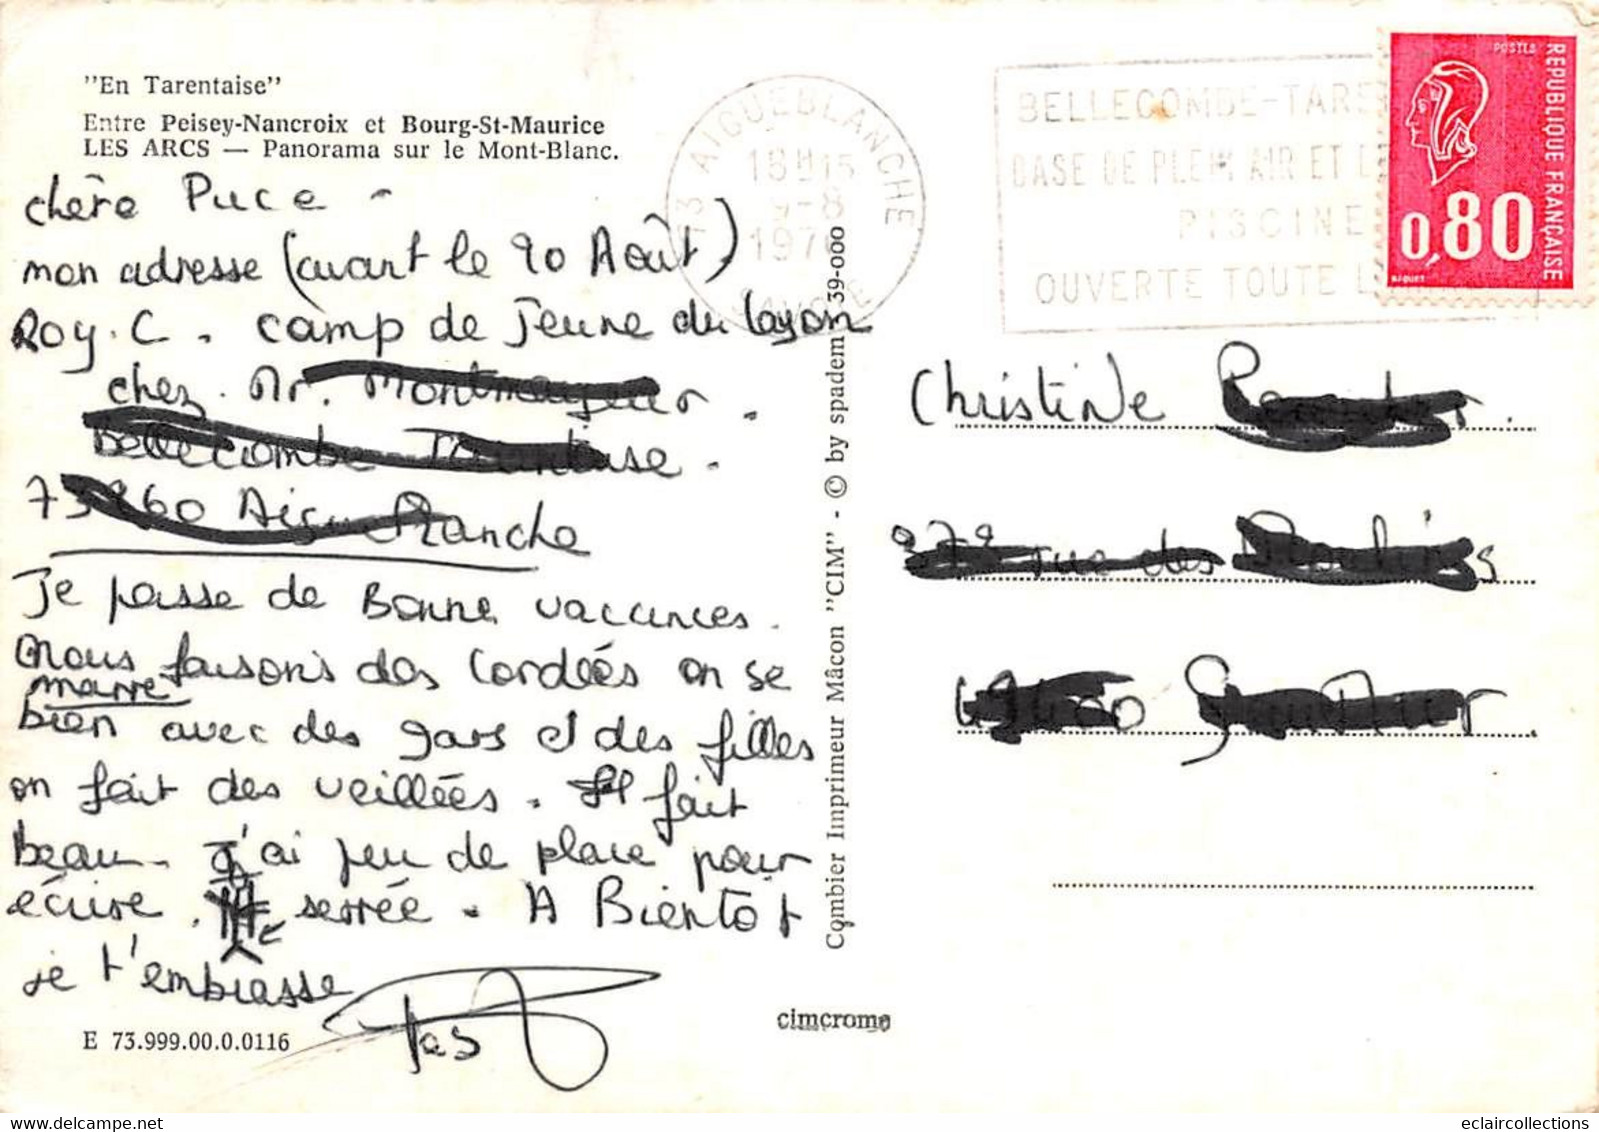 "En Tarentaise"
Entre Peisey-Nancroix et Bourg-St-Maurice
LES ARCS — Panorama sur le Mont-Blanc.
chère Puce -
mon adresse (avant le 20 Août)
Roy. C. camp de Jeune du layon
chez Mr.
Je passe de Bonne vacances.
nous faisons des Cordées on se
marre
bien avec des gars et des filles
on fait des veillées. Il fait
Beau. J'ai peu de place pour
écrire. serrée. A Bientôt
je t'embrasse
E 73.999.00.0.0116
Combier Imprimeur Mâcon "CIM" - © by spadem 39-000
cimcrome
73 AIGUEBLANCHE
18H15
9-8
SAVOIE
BELLECOMBE-TARE
BASE DE PLEIN AIR ET
PISCINE
OUVERTE TOUTE L
POSTES
REPUBLIQUE FRANÇAISE
0,80
BEQUET
Christine
rue des
eclaircollections